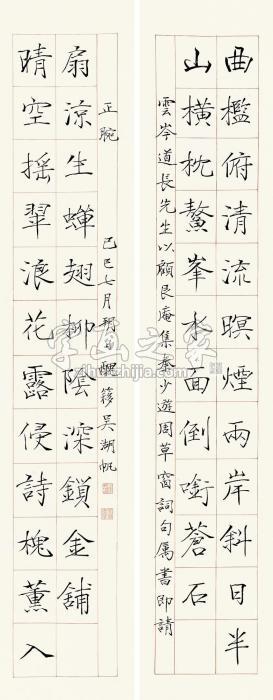 曲檻俯清流暝煙兩岸斜日半
山橫枕鼇峯水面倒銜蒼石
雲岑道長先生以顧艮庵集秦少遊周草窗詞句属書即請
晴空搖翠浪花露侵詩槐薰入
扇涼生蟬翅柳陰深鎖金鋪
正腕
己巳七月朔 醜簃吳湖帆